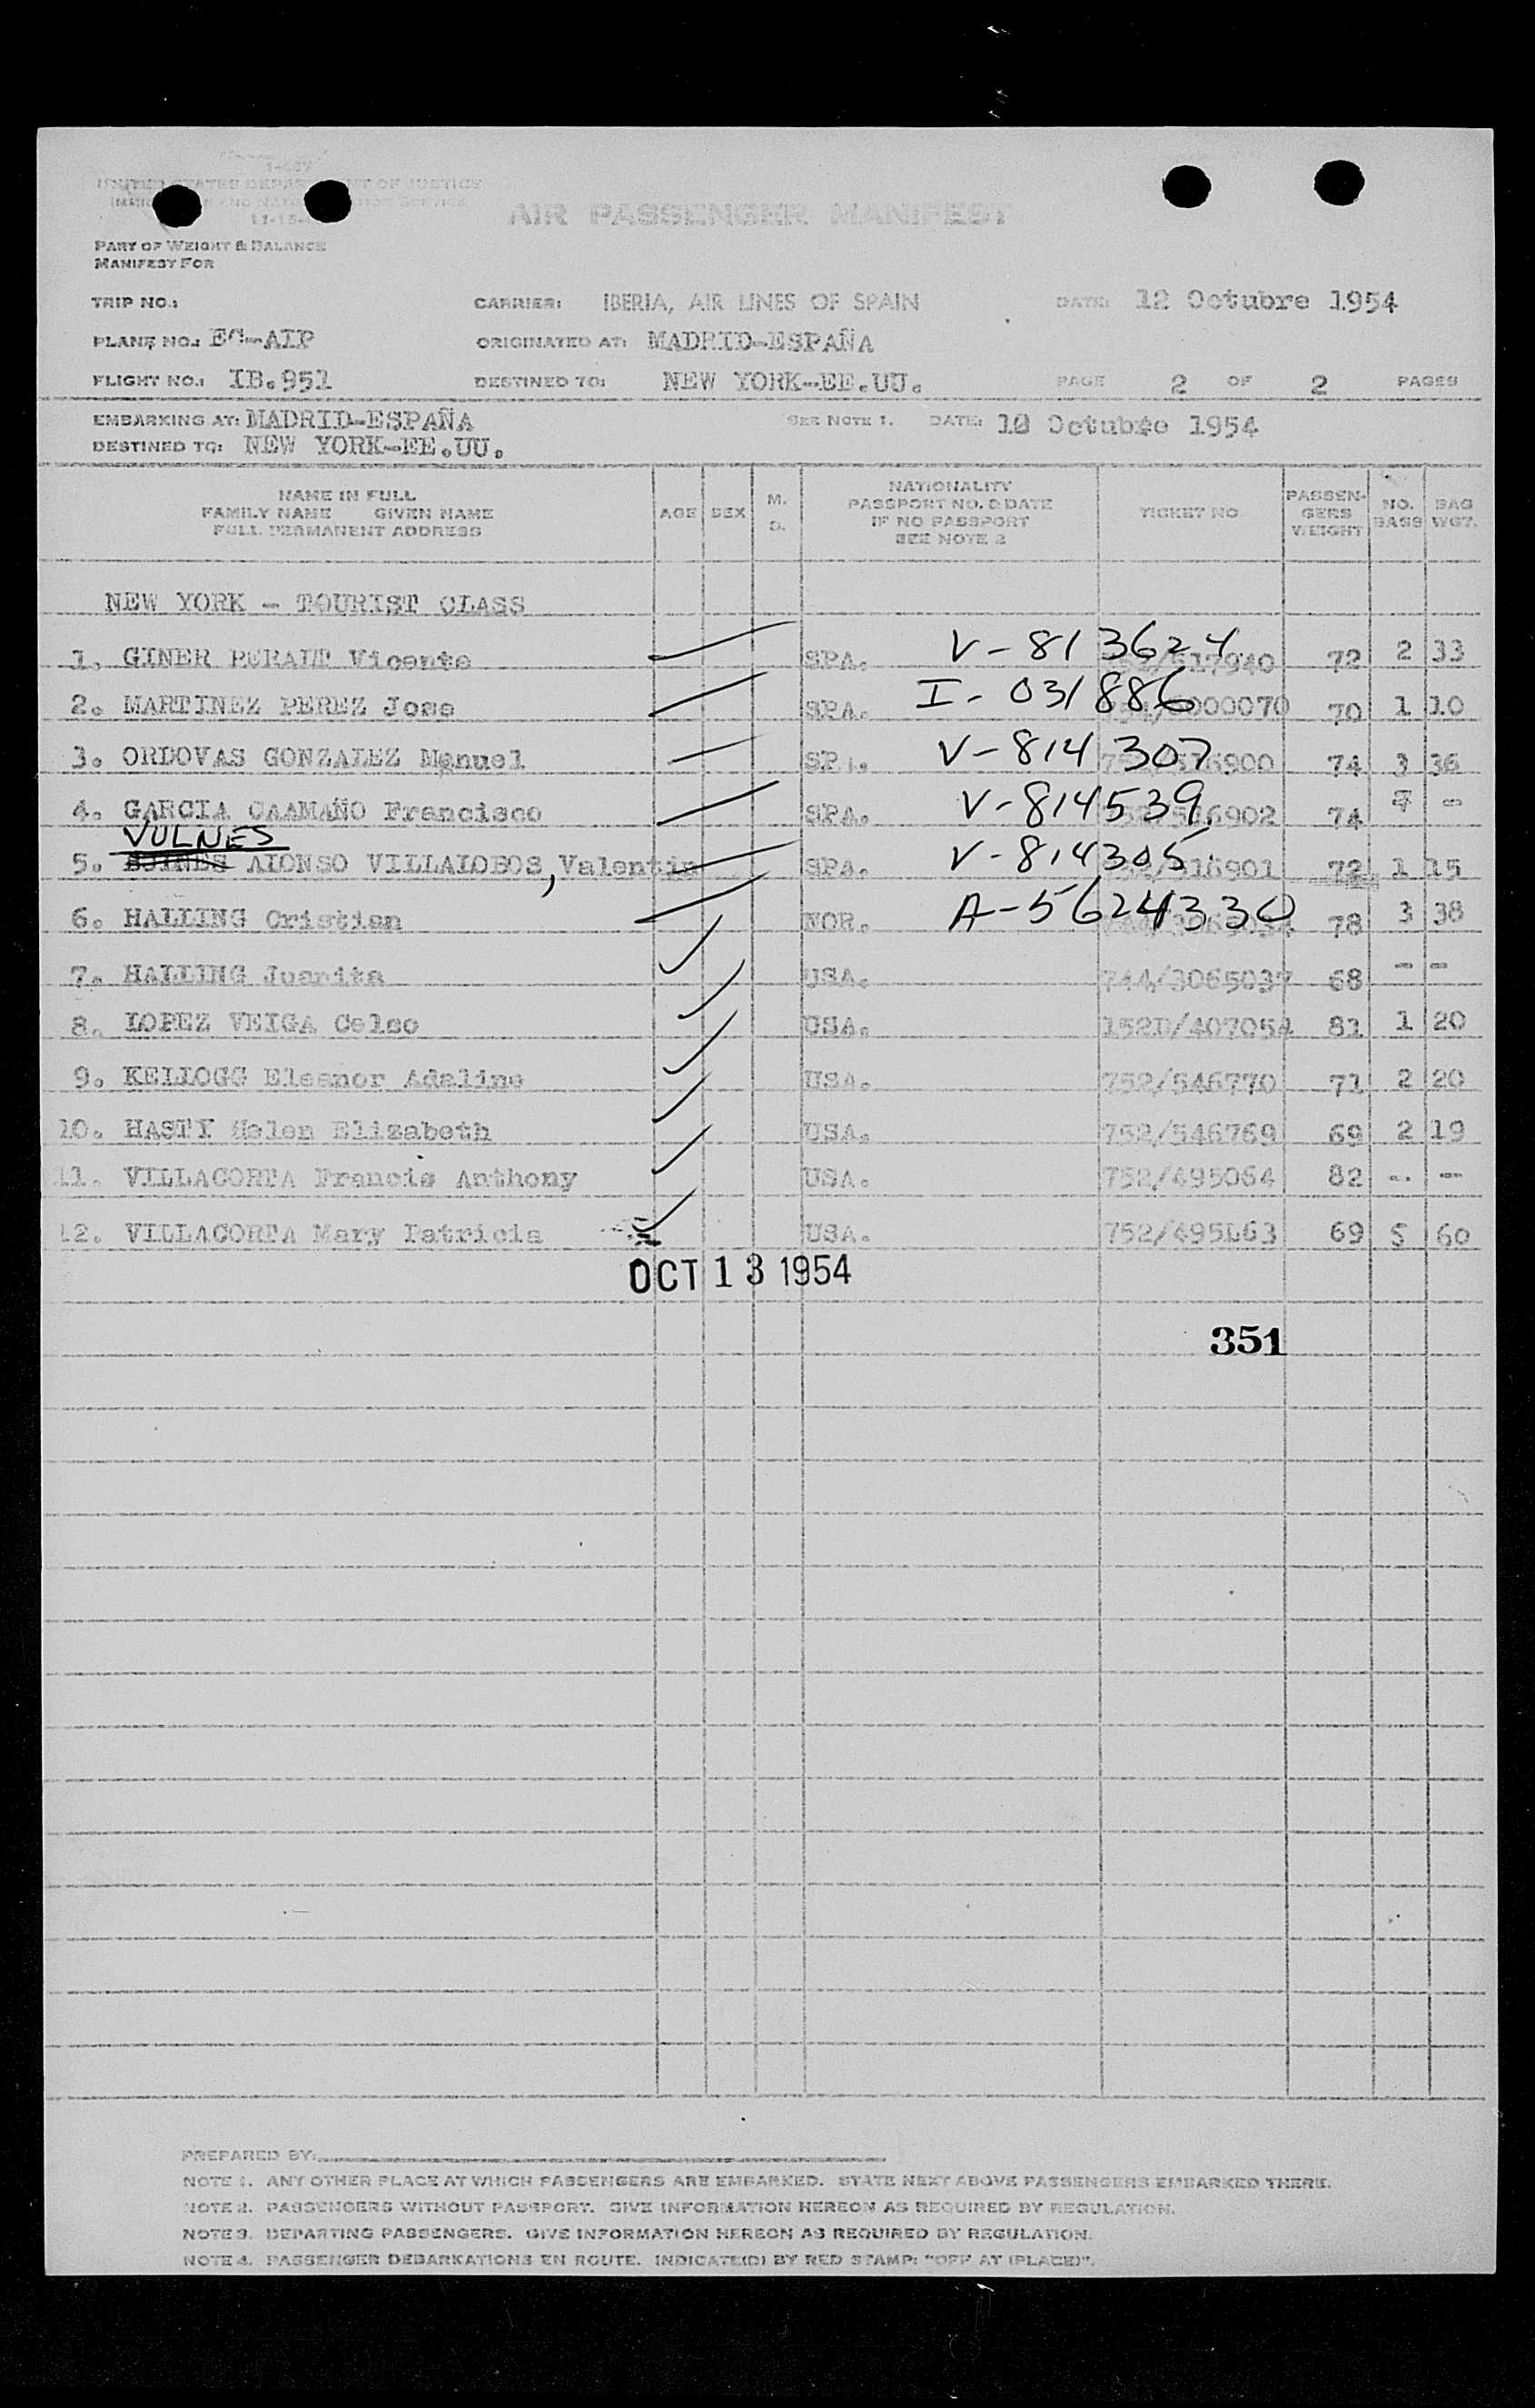 I-457
UNITED STATES DEPARTMENT OF JUSTICE
AIR PASSENGER MANIFEST
PART OF WEIGHT & BALANCE
MANIFEST FOR
TRIP NO.: CARRIER: IBERIA, AIR LINES OF SPAIN DATE: 12 Octubre 1954
PLANE NO.: EC-AIP ORIGINATED AT: MADRID-ESPAÑA
FLIGHT NO.: IB.951 DESTINED TO: NEW YORK-EE.UU. PAGE 2 OF 2 PAGES
EMBARKING AT: MADRID-ESPAÑA SEE NOTE 1. DATE: 10 Octubre 1954
DESTINED TO: NEW YORK-EE.UU.
NAME IN FULL
FAMILY NAME GIVEN NAME
FULL PERMANENT ADDRESS
AGE SEX M. S.
NATIONALITY
PASSPORT NO. & DATE
IF NO PASSPORT
SEE NOTE 2
TICKET NO. PASSEN-GERS WEIGHT NO. BAGS BAG WGT.
NEW YORK - TOURIST CLASS
1. GINER PERAIT Vicente SPA. V-813624 72 2 33
2. MARTINEZ PEREZ Jose SPA. I-031886 70 1 10
3. ORDOVAS GONZALEZ Manuel SPA. V-814307 74 3 36
4. GARCIA CAAMAÑO Francisco SPA. V-814539 74 -
VULNES
5. ALONSO VILLALOBOS, Valentin SPA. V-814305 72 1 15
6. HALLING Cristian NOR. A-5624330 78 3 38
7. HALLING Juanita USA. 744/3065037 68 - -
8. LOPEZ VEIGA Celso USA. 152D/407054 81 1 20
9. KELLOGG Eleanor Adaline USA. 752/546770 71 2 20
10. HASTY Helen Elizabeth USA. 752/546769 69 2 19
11. VILLACORTA Francis Anthony USA. 752/495064 82 - -
12. VILLACORTA Mary Patricia USA. 752/495063 69 5 60
OCT 13 1954
351
PREPARED BY:
NOTE 1. ANY OTHER PLACE AT WHICH PASSENGERS ARE EMBARKED. STATE NEXT ABOVE PASSENGERS EMBARKED THERE.
NOTE 2. PASSENGERS WITHOUT PASSPORT. GIVE INFORMATION HEREON AS REQUIRED BY REGULATION.
NOTE 3. DEPARTING PASSENGERS. GIVE INFORMATION HEREON AS REQUIRED BY REGULATION.
NOTE 4. PASSENGER DEBARKATIONS EN ROUTE. INDICATE(D) BY RED STAMP: "OFF AT (PLACE)".